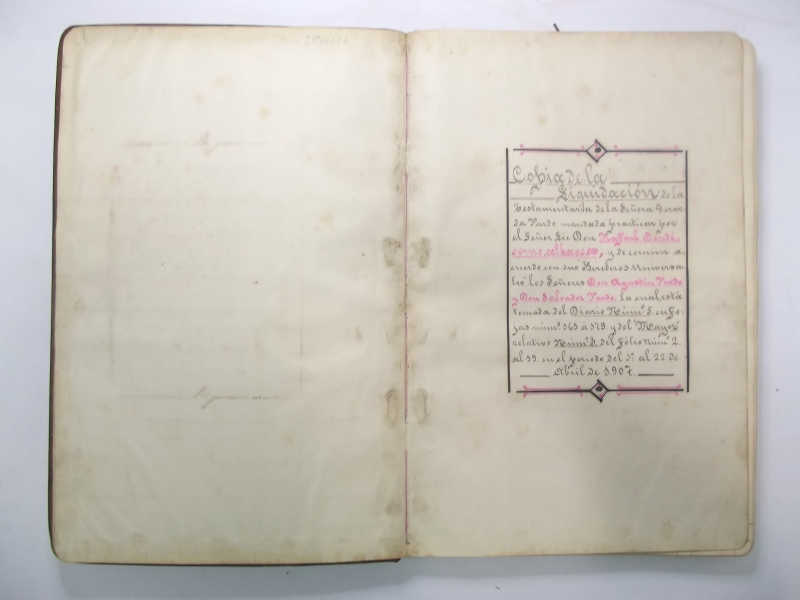 Copia de la
Liquidación de la
Testamentaria de la Señora Gerar
da Pardo mandada practicar por
el Señor Lic Don Rafael Dondé,
como albacea, y de comun a
cuerdo con sus Herederos Universa
les los Señores Don Agustin Pardo
y Don Salvador Pardo. la cual está
tomada del Diario Núm.º 1. en fo-
jas núm.º 365 á 379. y del Mayor
relativo Núm.º 1. del fólio Núm.º 2.
al 33. en el periodo del 1º al 22 de
Abril de 1,907.